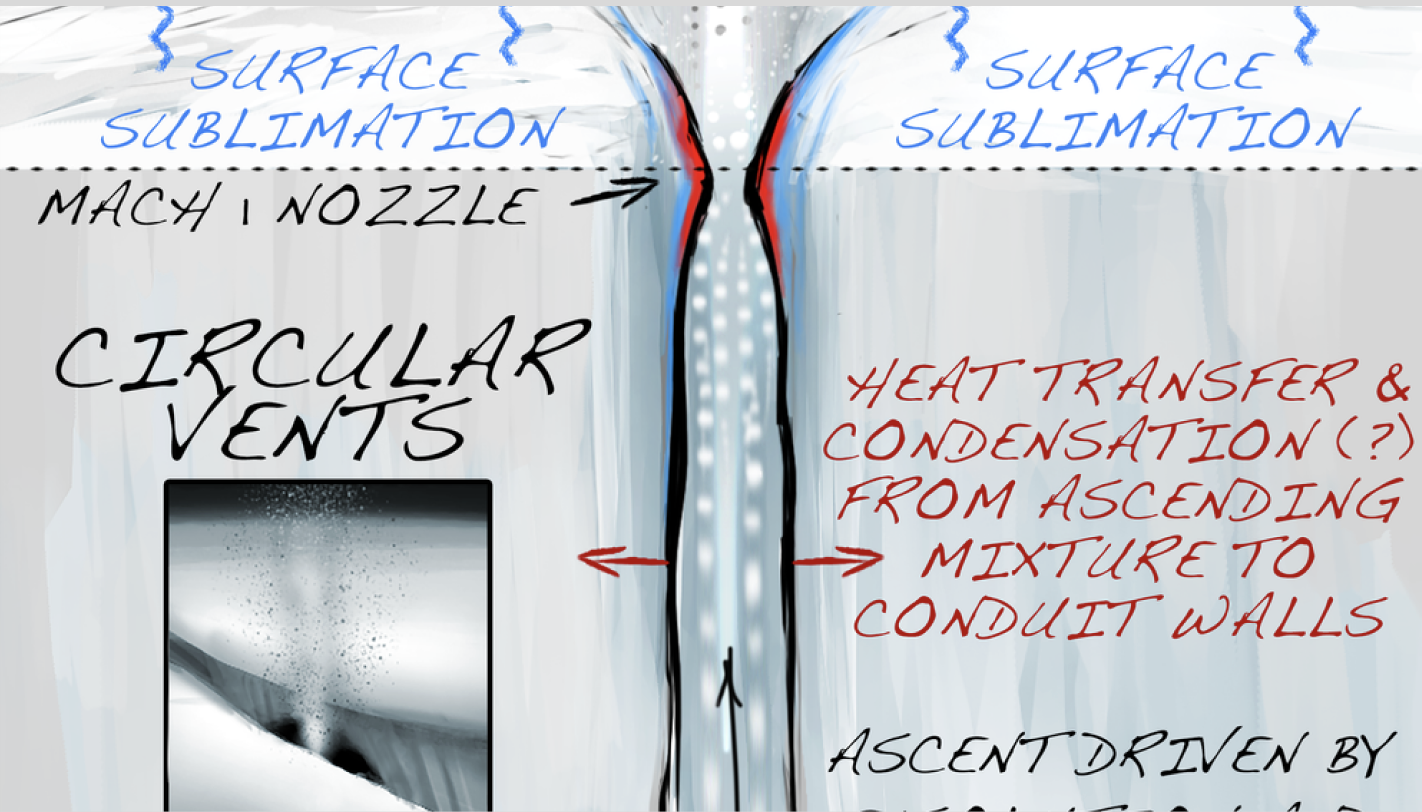 SURFACE
SUBLIMATION
SURFACE
SUBLIMATION
MACH 1 NOZZLE
CIRCULAR
VENTS
HEAT TRANSFER &
CONDENSATION (?)
FROM ASCENDING
MIXTURE TO
CONDUIT WALLS
ASCENT DRIVEN BY